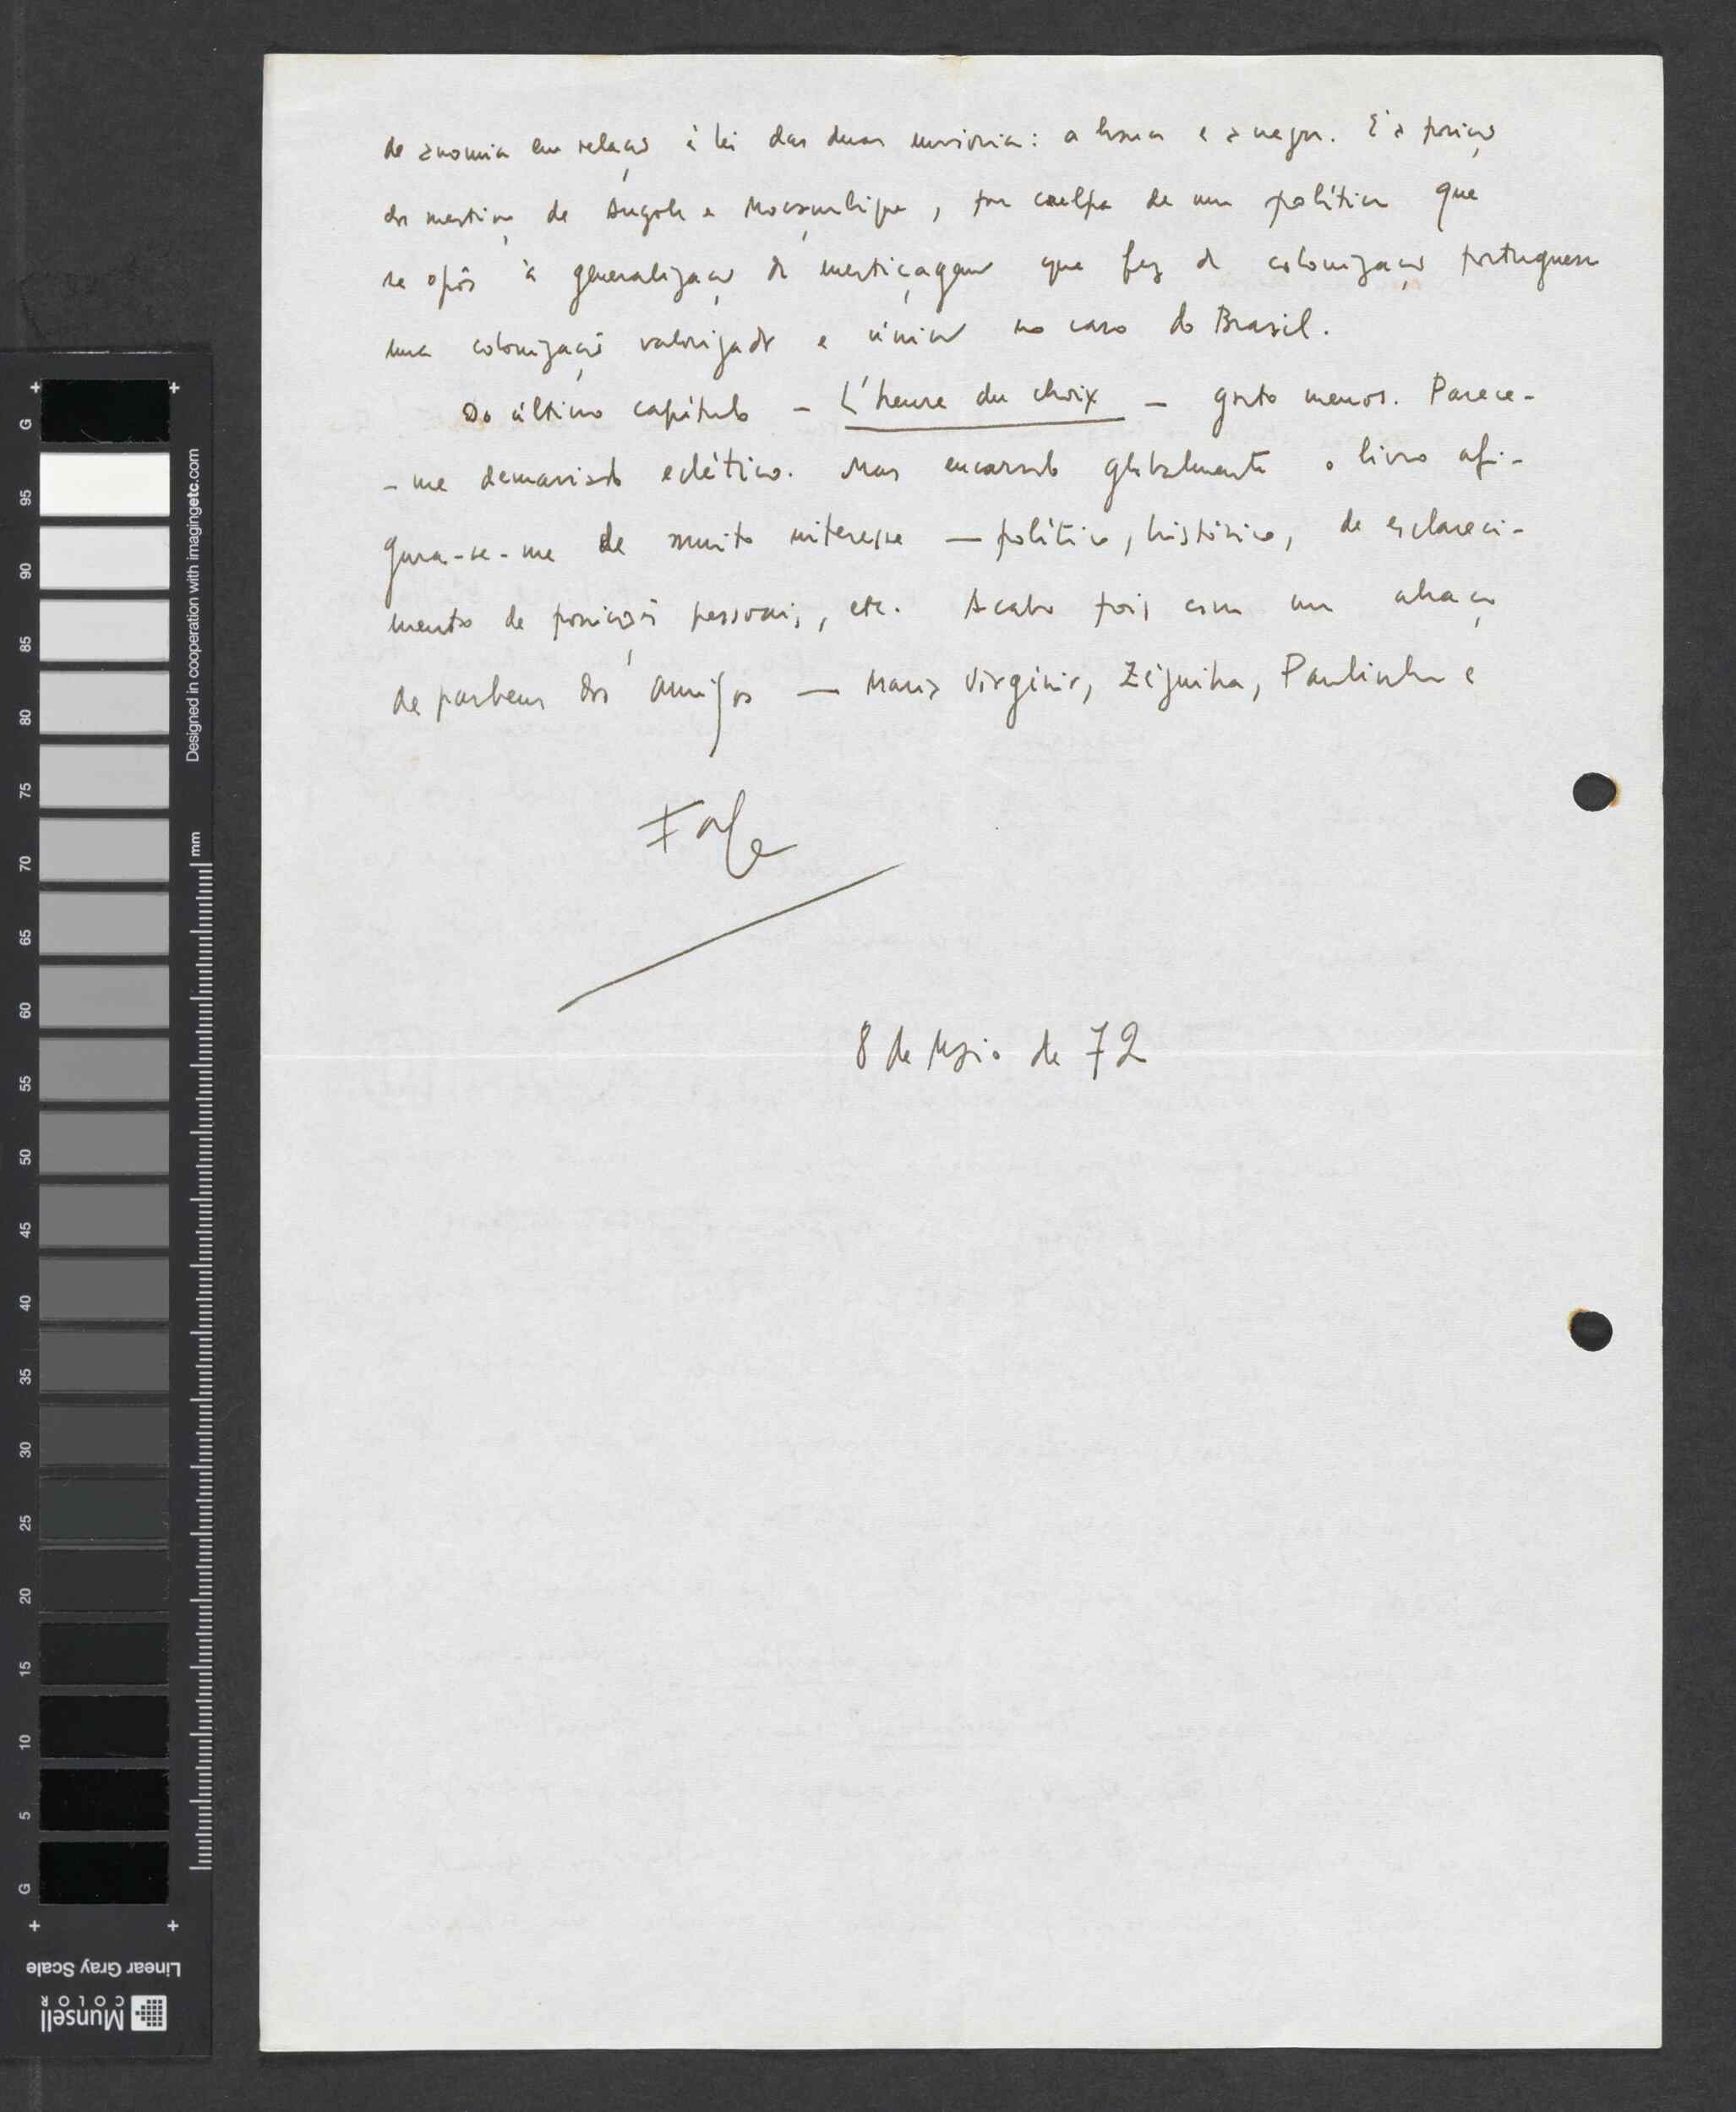 de anomia em relação à lei das duas maiorias: a branca e a negra. É a posição
dos mestiços de Angola e Moçambique, por culpa de uma política que
se opôs à generalização da mestiçagem que fez da colonização portuguesa
uma colonização valorizada e única no caso do Brasil.
Do último capítulo — L'heure du choix — gosto menos. Parece-
-me demasiado eclético. Mas encarado globalmente o livro afi-
gura-se-me de muito interesse — político, histórico, de esclareci-
mento de posições pessoais, etc. Acabo pois com um abraço
de parabens dos amigos — Maria Virgínia, Zéquinha, Paulinho e
8 de Maio de 72
G
95
90
85
80
75
70
65
60
55
50
45
40
35
30
25
20
15
10
5
G
Designed in cooperation with imagingetc.com
mm
Linear Gray Scale
Munsell
COLOR